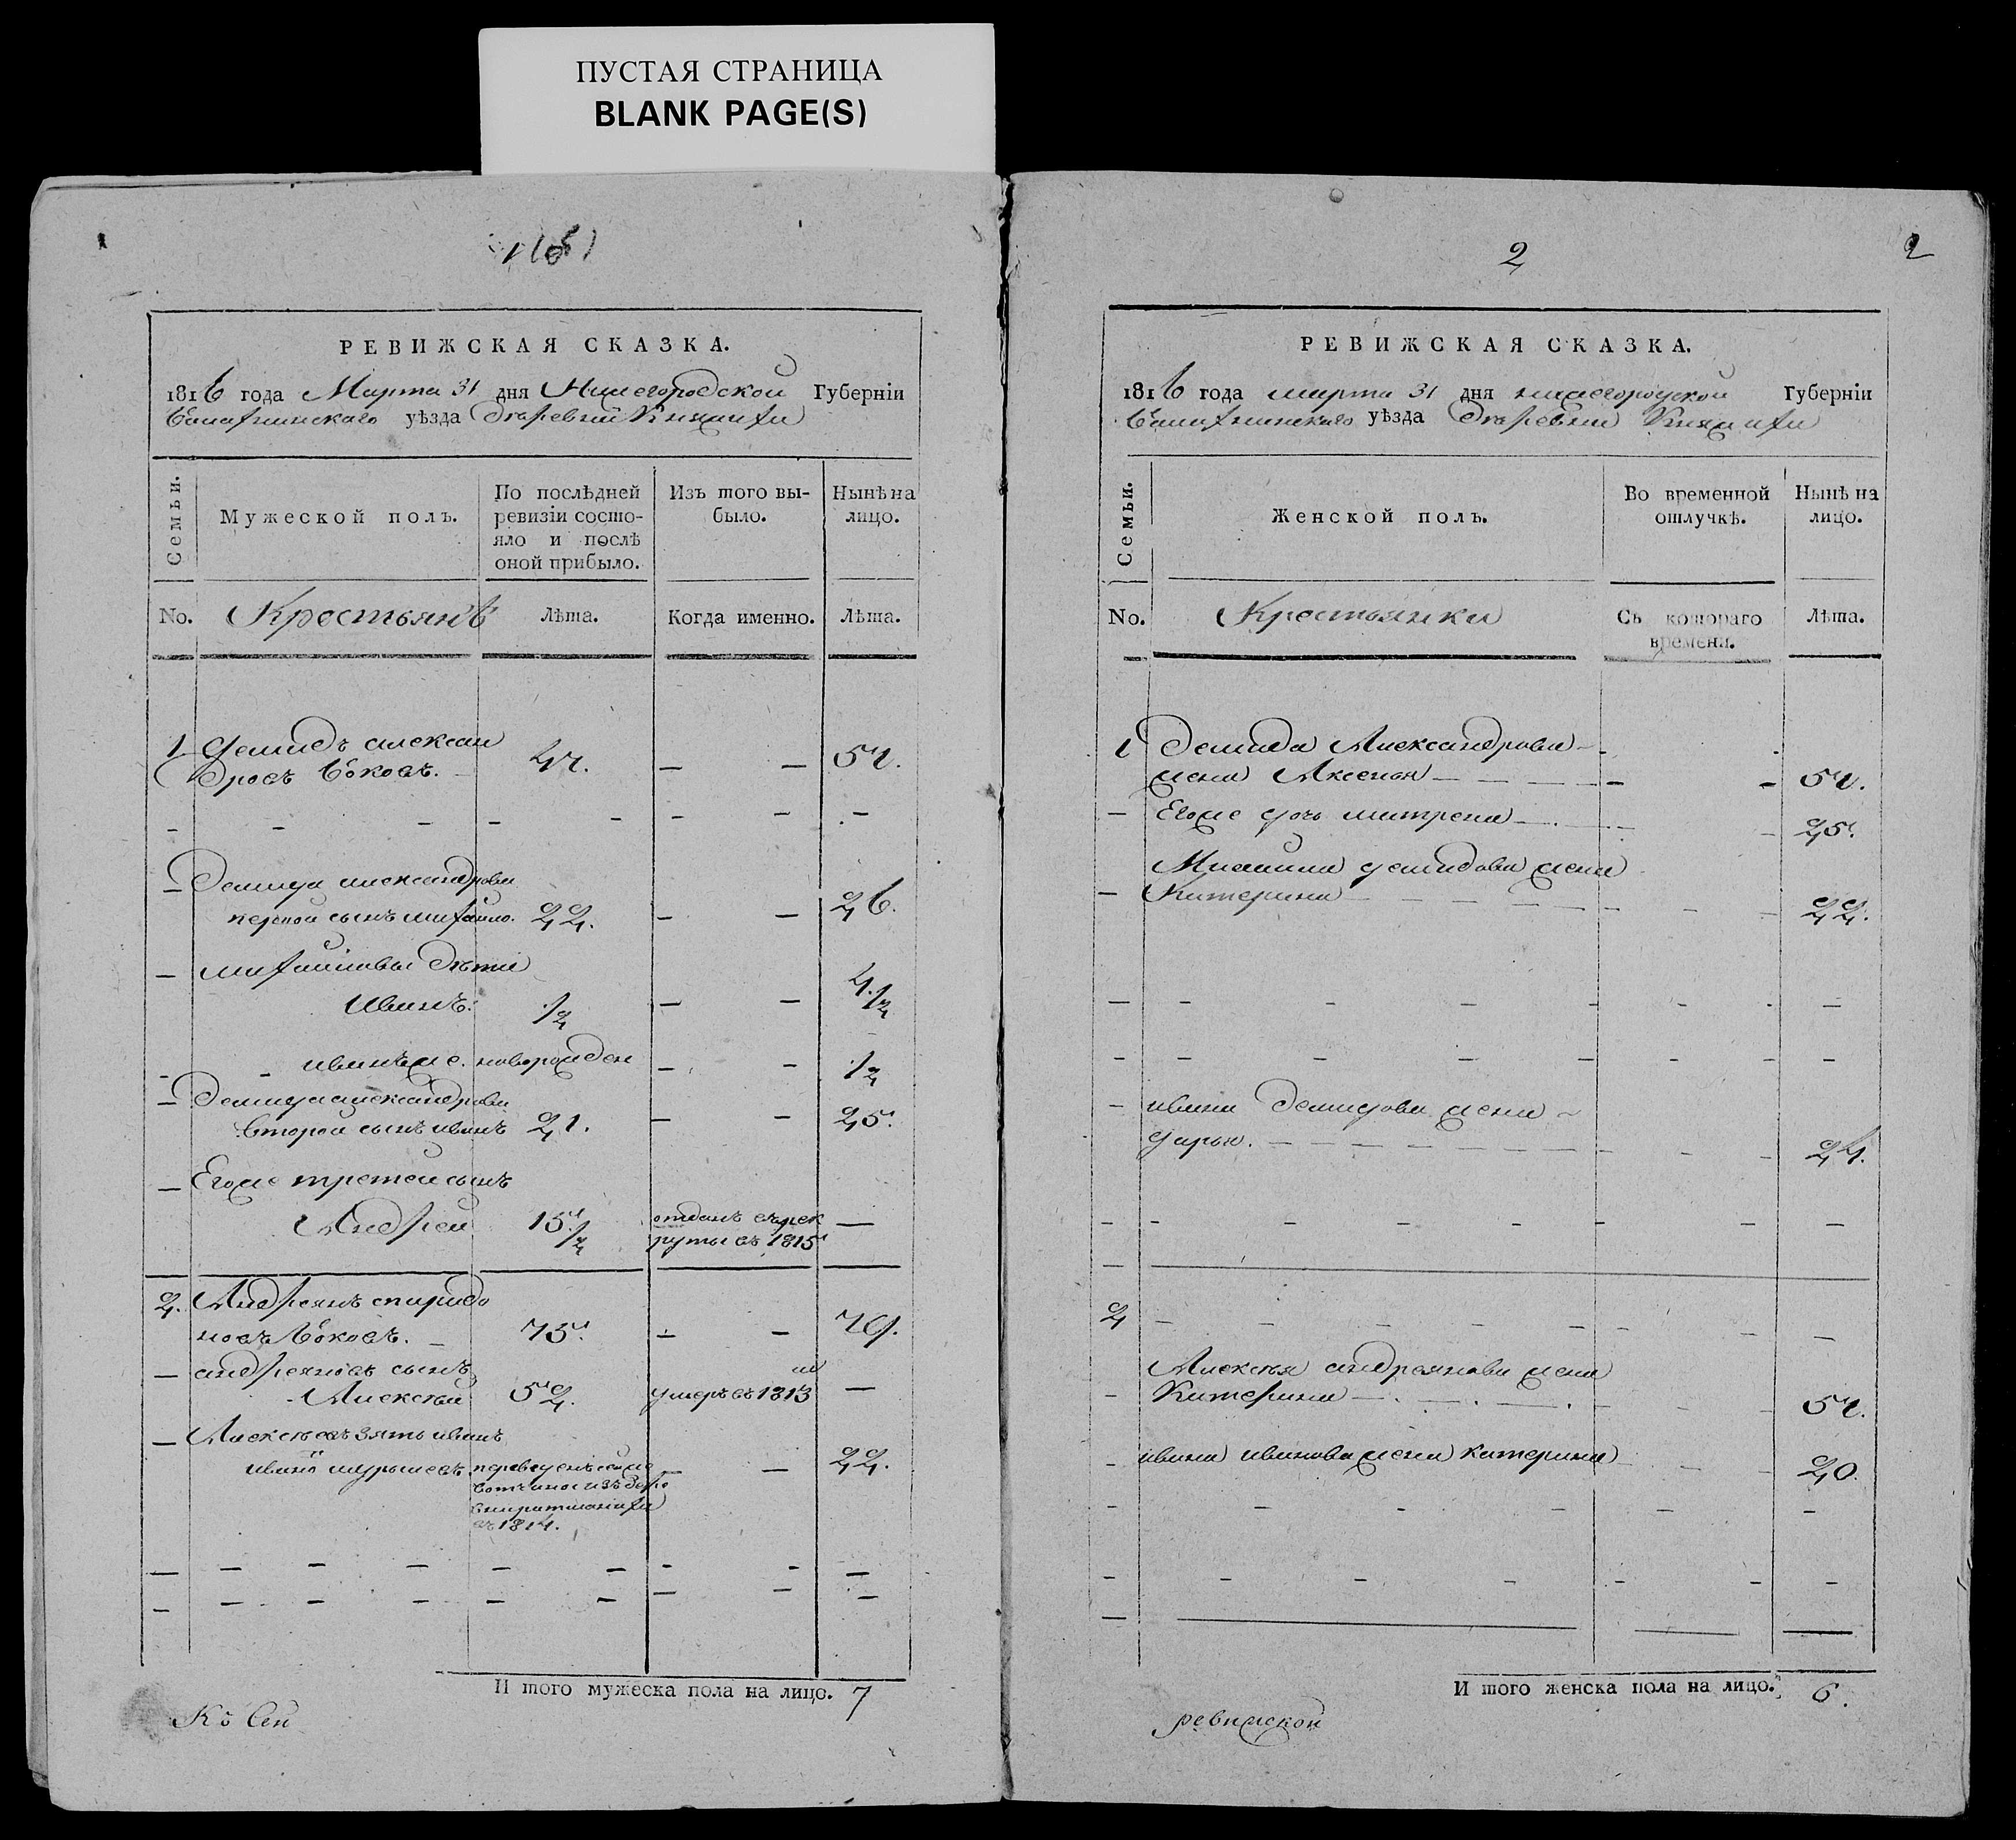 ПУСТАЯ СТРАНИЦА
BLANK PAGE(S)
РЕВИЖСКАЯ СКАЗКА.
1816 года Марта 31 дня Нижегородской Губерніи
уѣзда
Семьи.
Мужеской полъ.
По послѣдней ревизіи состо-
яло и послѣ
оной прибыло.
Изъ того вы-
было.
Нынѣ на
лицо.
No.
Крестьянѣ
Лѣта.
Когда именно.
Лѣта.
1 Демидъ алексан
дровъ Боковъ. 47. — — 51.
— Демида александрова
первой сынъ михайло. 22. — — 26.
— михайловы дѣти
Иванъ. 1/2 — — 4.1/2
иванъ же. новорожден — — 1/2
— Демида александрова
второй сынъ иванъ 21. — — 25.
— Егоже третей сынъ
Андрей 15 1/2 отданъ въ рек —
руты въ 1815
2. Андреянъ спиридо
новъ Боковъ. — 75. — — 79.
— андреяновъ сынъ
Алексѣй 52. умеръ въ 1813 —
— Алексѣевъ зять иванъ
ивановъ переведенъ 22.
въ 1814.
И того мужеска пола на лицо. 7
Къ Сей
2
2
РЕВИЖСКАЯ СКАЗКА.
1816 года марта 31 дня нижегородской Губерніи
уѣзда
Семьи.
Женской полъ.
Во временной
отлучкѣ.
Нынѣ на
лицо.
No.
Крестьянки
Съ котораго
времени.
Лѣта.
1 Демида Александрова
жена Аксенья 51.
— Егоже дочь матрена 25.
Михайла демидова жена
— Катерина 22.
— ивана Демидова жена
дарья. 24.
2
Алексѣя андреянова жена
— Катерина 51.
— ивана иванова жена катерина 20.
И того женска пола на лицо. 6.
ревижской